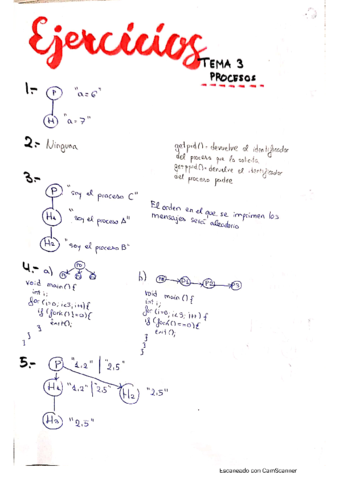 Ejercicios
TEMA 3
PROCESOS
1.- P "a=6"
H "a=7"
2.- Ninguna
getpid() = devuelve el identificador
del proceso que la solicita
getppid() = devuelve el identificador
del proceso padre
3.- P "soy el proceso C"
H1 "soy el proceso A"
H2 "soy el proceso B"
El orden en el que se imprimen los
mensajes será aleatorio
4.- a) P0
void main() {
int i;
for (i=0; i<3; i++) {
if (fork()==0) {
exit();
}
}
}
b) P0 P1 P2 P3
void main() {
int i;
for (i=0; i<3; i++) {
if (fork()==0) {
exit();
}
}
}
5.- P "1,2" | "2,5"
H1 "1,2" | "2,5" H2 "2,5"
H3 "2,5"
Escaneado con CamScanner